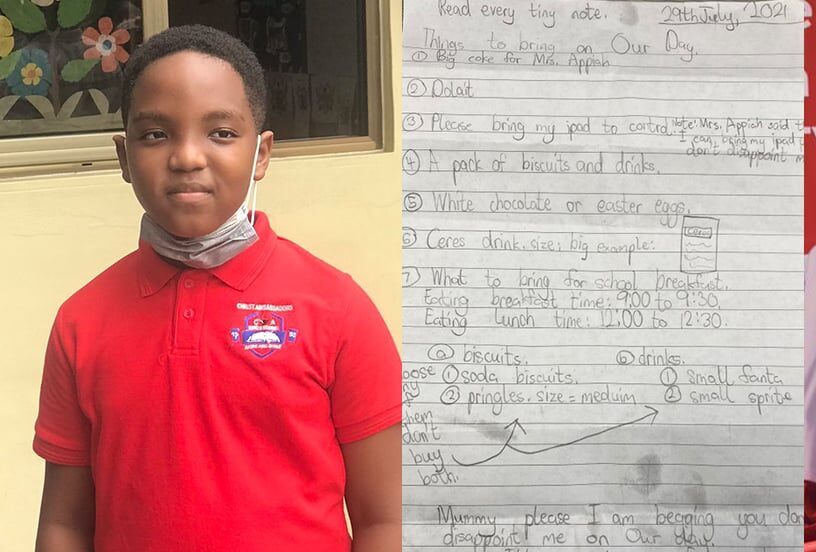 CHRIST AMBASSADORS
Read every tiny note. 29th July, 2021
Things to bring on Our Day.
① Big cake for Mrs. Appiah
② Dolait
③ Please bring my ipad to control. Note: Mrs. Appiah said
I can bring my ipad
don't disappoint
④ A pack of biscuits and drinks.
⑤ White chocolate or easter eggs.
⑥ Ceres drink. size; big example: Ceres
7) What to bring for school breakfast.
Eating breakfast time: 9:00 to 9:30.
Eating Lunch time: 12:00 to 12:30.
ⓐ biscuits. ⓑ drinks.
① soda biscuits. ① small fanta
② pringles. size = meduim ② small sprite
them
don't
buy
both.
Mummy please I am begging you
disappoint me on Our Day.